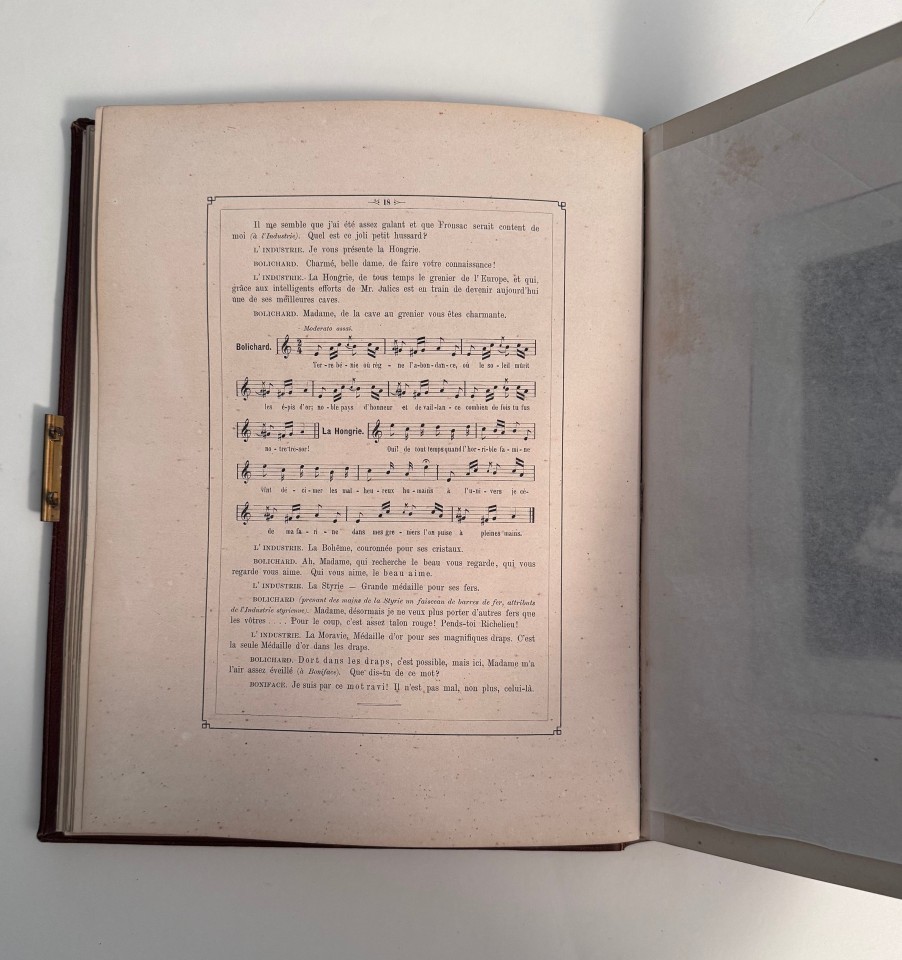 18
Il me semble que j'ai été assez galant et que Fronsac serait content de
moi (à l'Industrie). Quel est ce joli petit hussard?
L'INDUSTRIE. Je vous présente la Hongrie.
BOLICHARD. Charmé, belle dame, de faire votre connaissance!
L'INDUSTRIE. La Hongrie, de tous temps le grenier de l'Europe, et qui,
grâce aux intelligents efforts de Mr. Jalics est en train de devenir aujourd'hui
une de ses meilleures caves.
BOLICHARD. Madame, de la cave au grenier vous êtes charmante.
Moderato assai.
Bolichard.
Ter-re bé-nie où règ-ne l'a-bon-dan-ce, où le so-leil mûrit
les é-pis d'or; no-ble pays d'honneur et de vail-lan-ce combien de fois tu fus
La Hongrie.
no-tre tré-sor! Oui! de tout temps quand l'hor-ri-ble fa-mi-ne
vint dé-ci-mer les mal-heu-reux hu-mains à l'u-ni-vers je cè-
de ma fa-ri-ne dans mes gre-niers l'on puise à pleines mains.
L'INDUSTRIE. La Bohême, couronnée pour ses cristaux.
BOLICHARD. Ah, Madame, qui recherche le beau vous regarde, qui vous
regarde vous aime. Qui vous aime, le beau aime.
L'INDUSTRIE. La Styrie — Grande médaille pour ses fers.
BOLICHARD (prenant des mains de la Styrie un faisceau de barres de fer, attributs
de l'Industrie styrienne). Madame, désormais je ne veux plus porter d'autres fers que
les vôtres . . . . Pour le coup, c'est assez talon rouge! Pends-toi Richelieu!
L'INDUSTRIE. La Moravie, Médaille d'or pour ses magnifiques draps. C'est
la seule Médaille d'or dans les draps.
BOLICHARD. Dort dans les draps, c'est possible, mais ici, Madame m'a
l'air assez éveillé (à Boniface). Que dis-tu de ce mot?
BONIFACE. Je suis par ce mot ravi! Il n'est pas mal, non plus, celui-là.